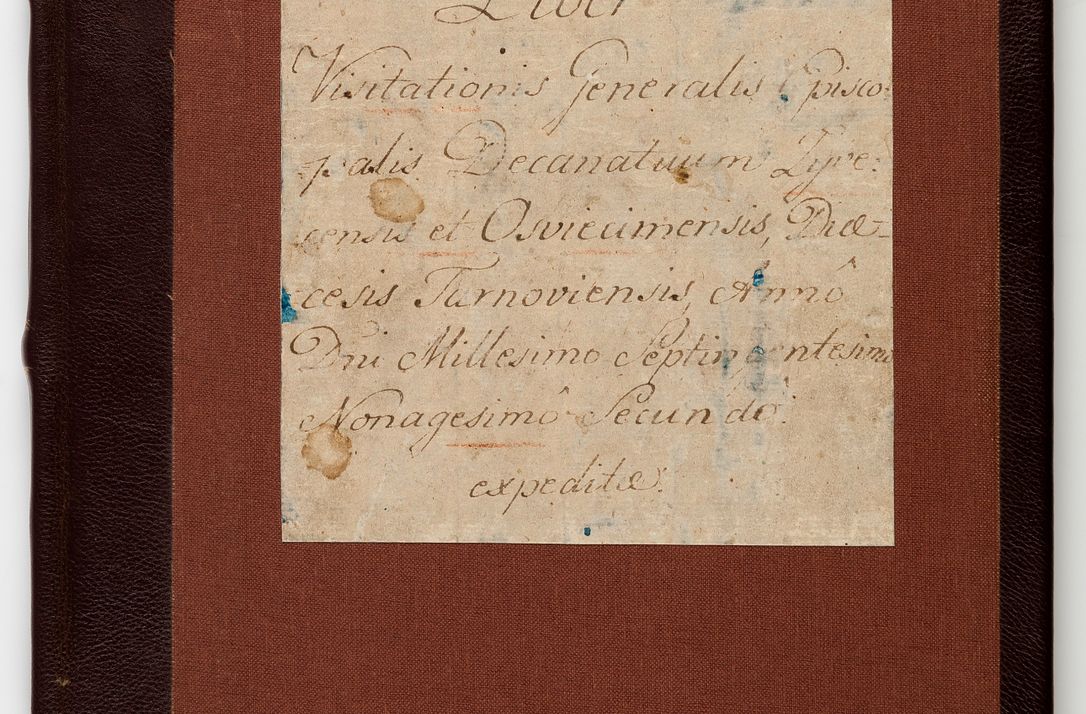 Liber
Visitationis Generalis Episco-
palis Decanatuum Zyve-
censis et Osviecimensis, Diœ-
cesis Tarnoviensis, Annô
Dni Millesimo Septingentesimo
Nonagesimô Secundô.
expeditæ.